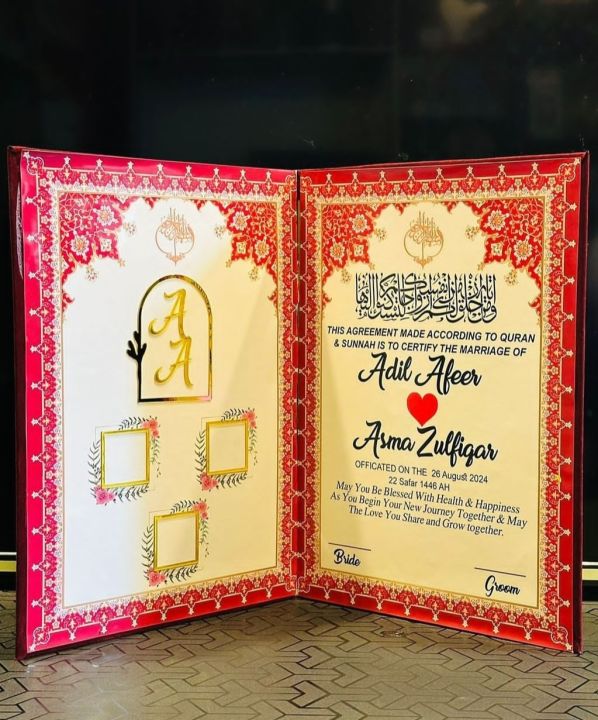 A
A
ومن آياته أن خلق لكم من أنفسكم أزواجا لتسكنوا إليها
THIS AGREEMENT MADE ACCORDING TO QURAN
& SUNNAH IS TO CERTIFY THE MARRIAGE OF
Adil Afeer
Asma Zulfiqar
OFFICATED ON THE 26 August 2024
22 Safar 1446 AH
May You Be Blessed With Health & Happiness
As You Begin Your New Journey Together & May
The Love You Share and Grow together.
Bride
Groom